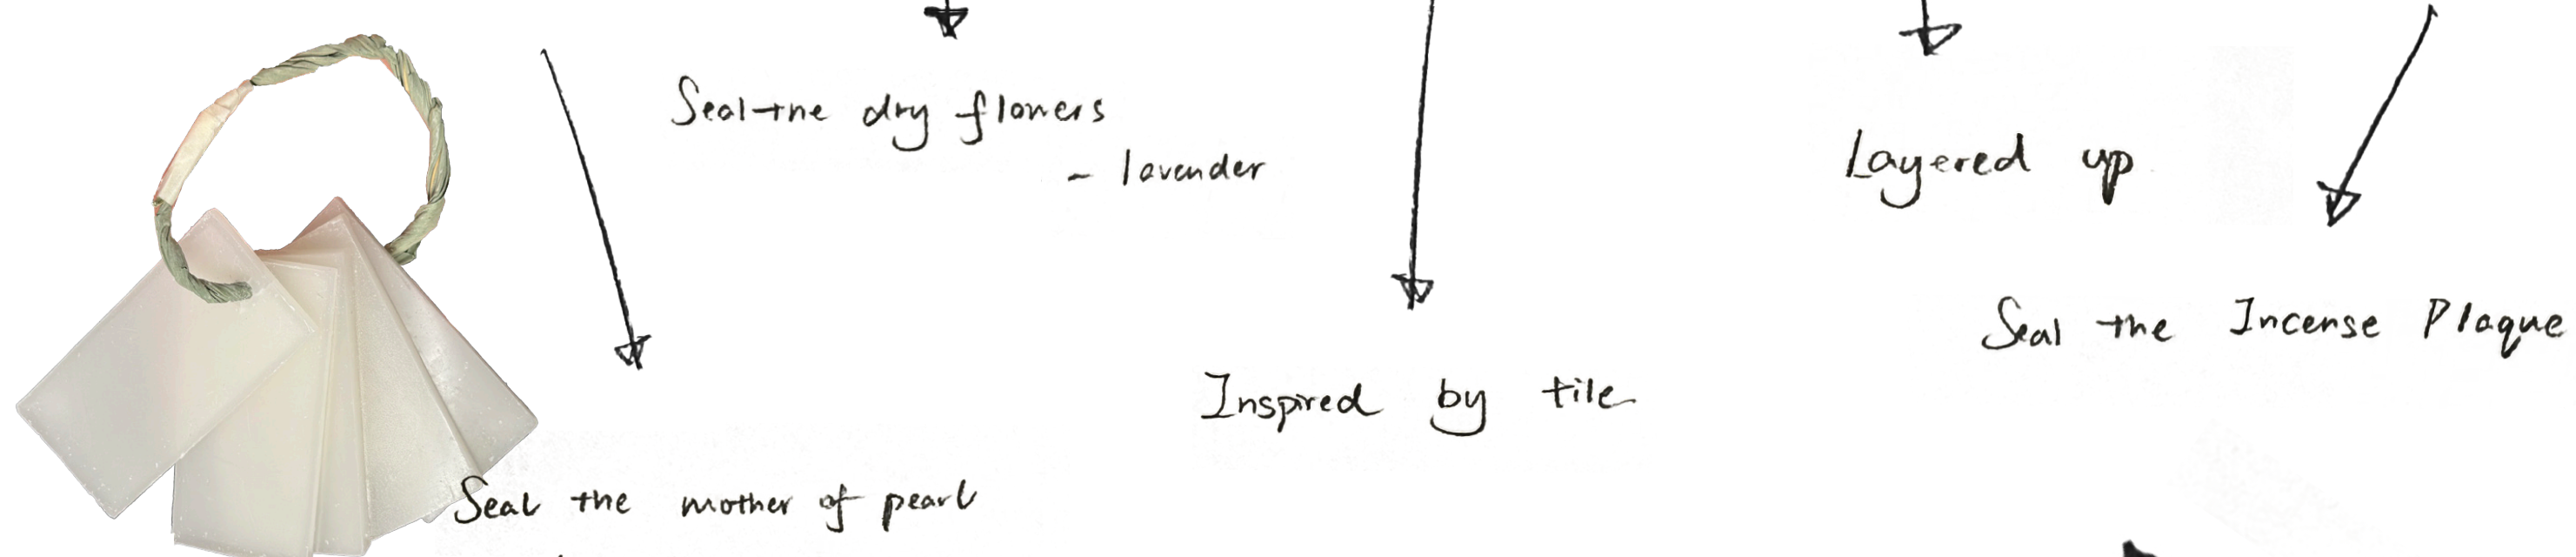 Seal the dry flowers
- lavender
Layered up
Seal the Incense Plaque
Inspired by tile
Seal the mother of pearl